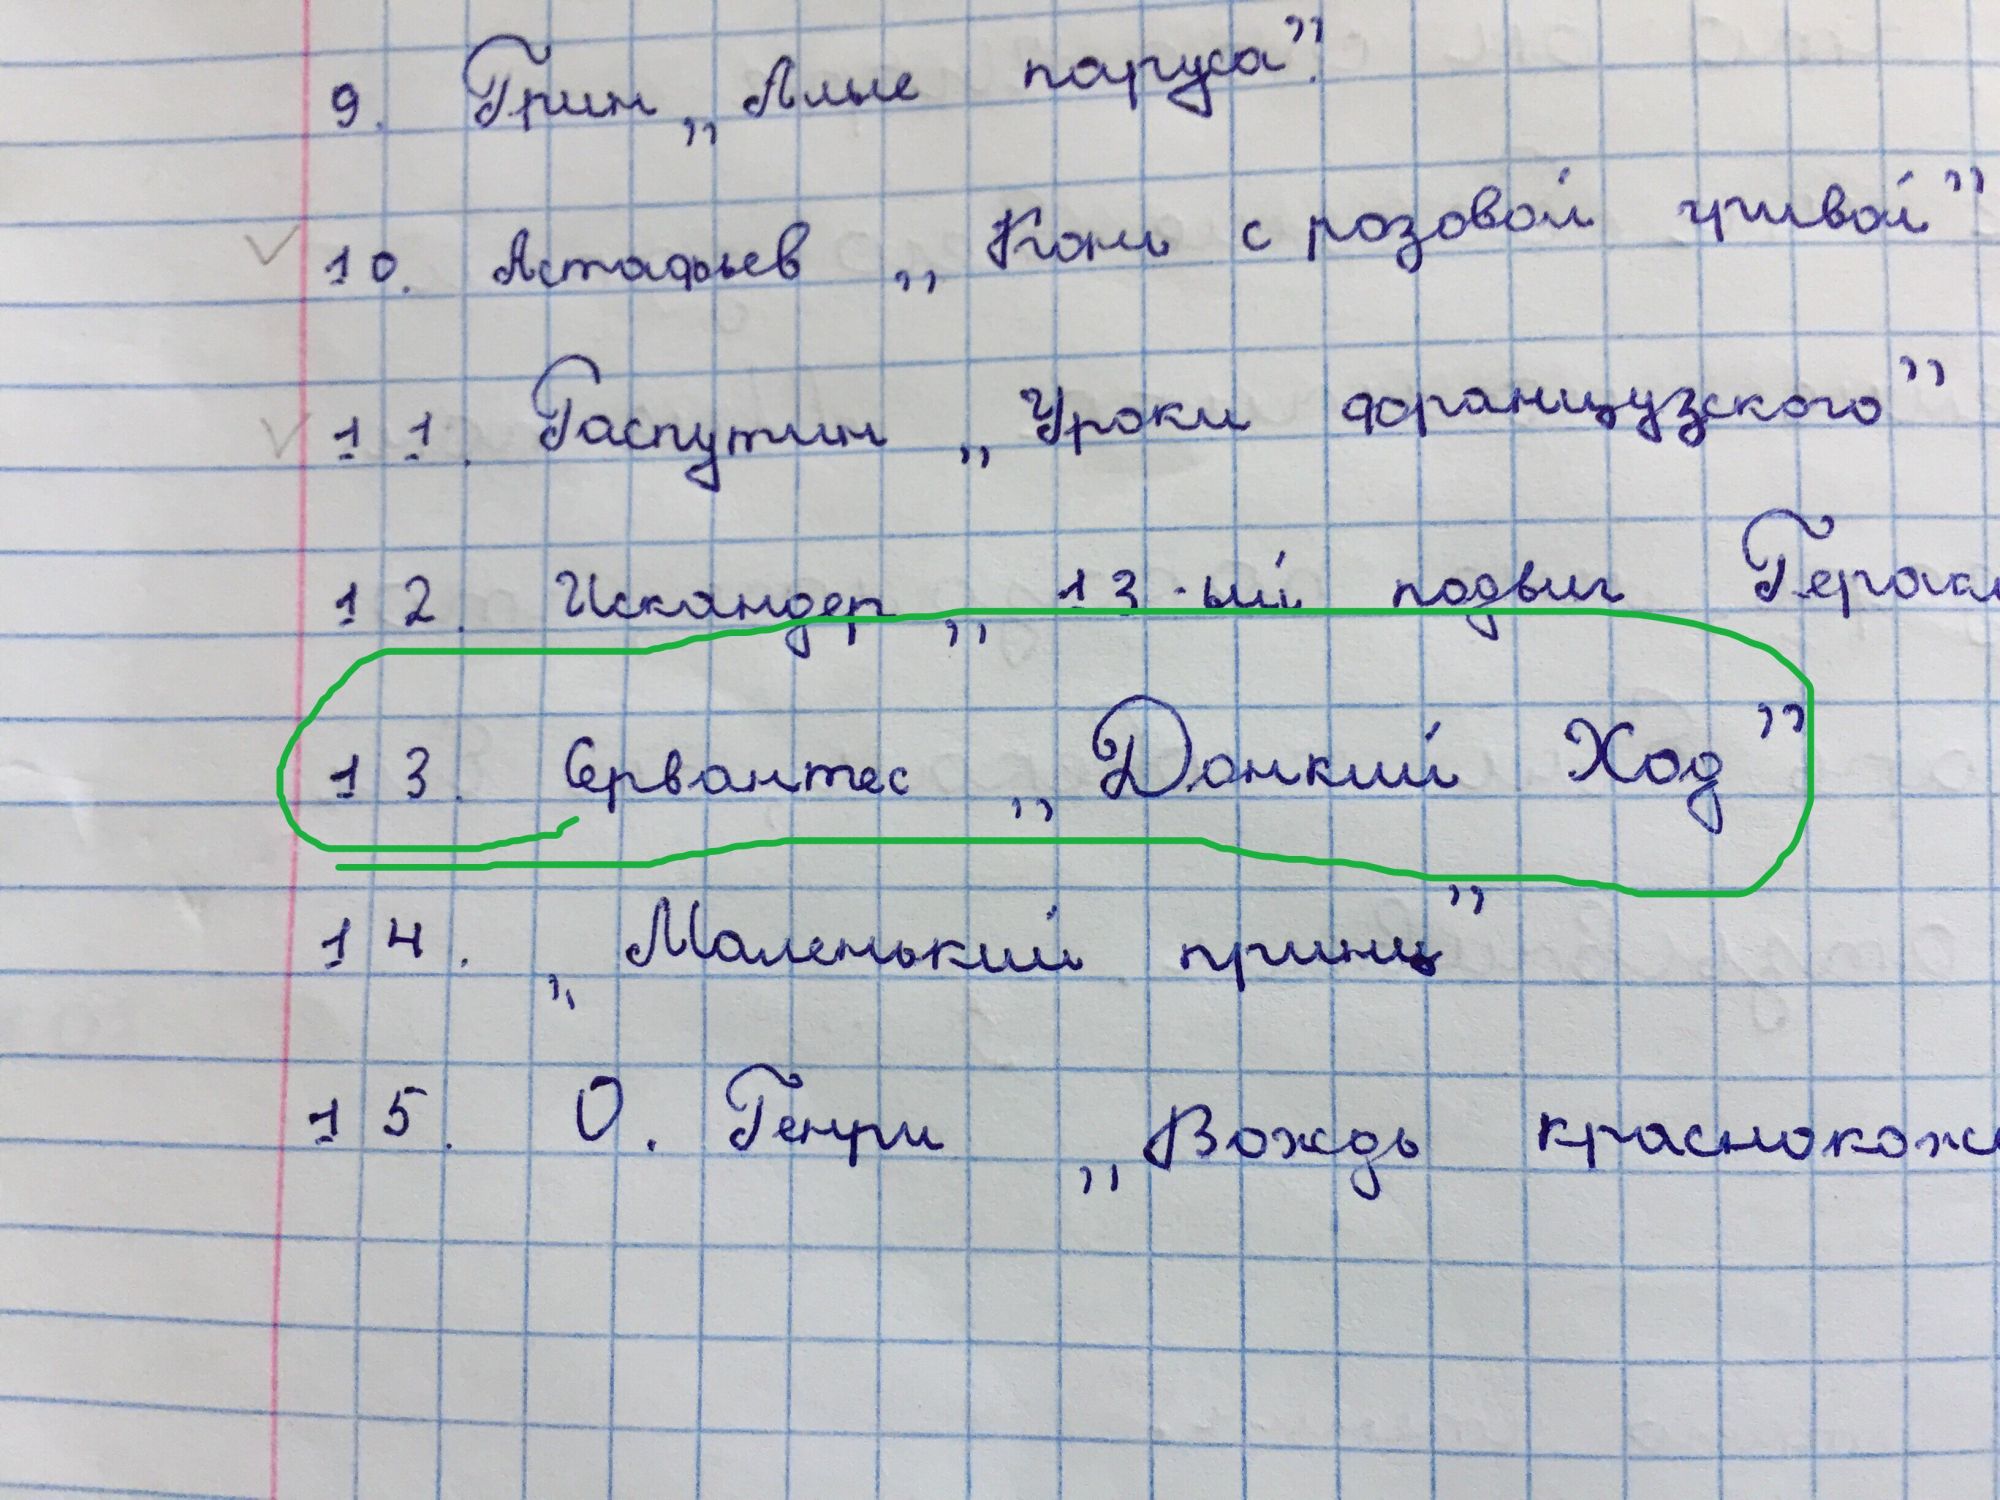 9. Грин „Алые паруса”.
10. Астафьев „Конь с розовой гривой”
11. Распутин „Уроки французского”
12. Искандер „13-ый подвиг Геракл
13. Сервантес „Донкий Ход”
14. „Маленький принц”
15. О. Генри „Вождь краснокож